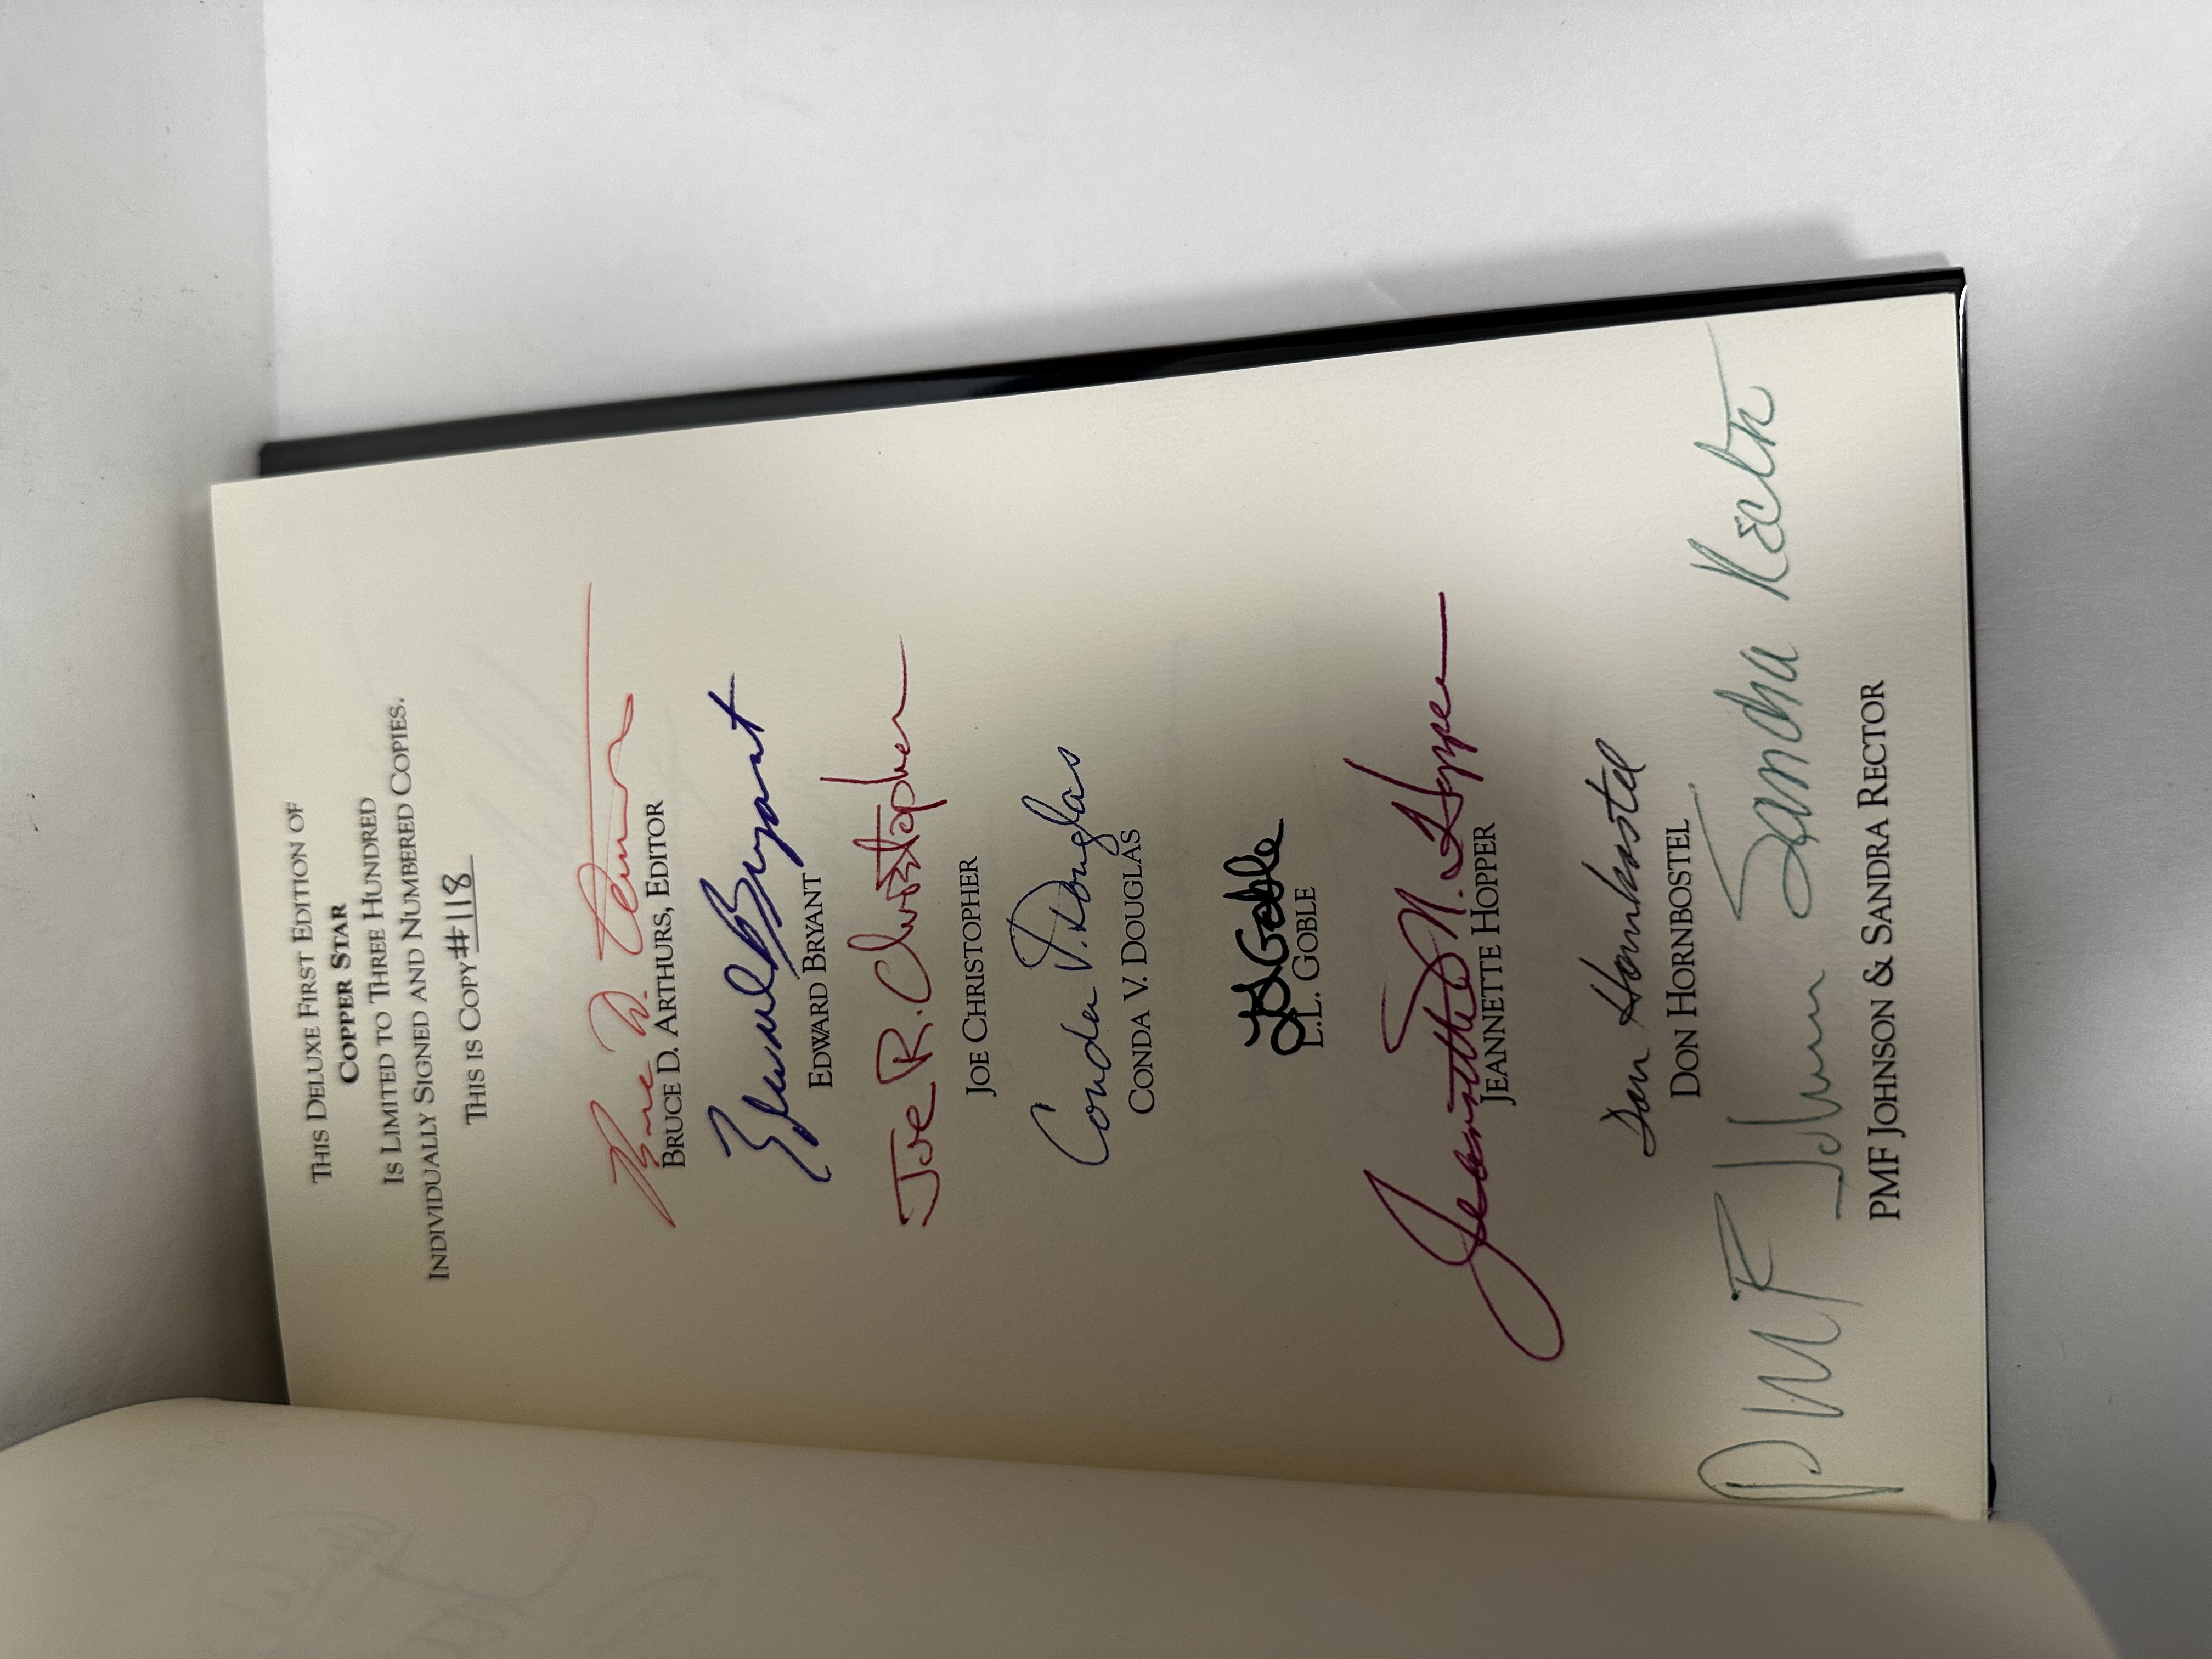 THIS DELUXE FIRST EDITION OF
COPPER STAR
IS LIMITED TO THREE HUNDRED
INDIVIDUALLY SIGNED AND NUMBERED COPIES.
THIS IS COPY #118
BRUCE D. ARTHURS, EDITOR
Edward Bryant
EDWARD BRYANT
Joe R. Christopher
JOE CHRISTOPHER
Conda V. Douglas
CONDA V. DOUGLAS
Goble
L.L. GOBLE
Jeannette M. Hopper
JEANNETTE HOPPER
Don Hornbostel
DON HORNBOSTEL
PMF Johnson Sandra Rector
PMF JOHNSON & SANDRA RECTOR